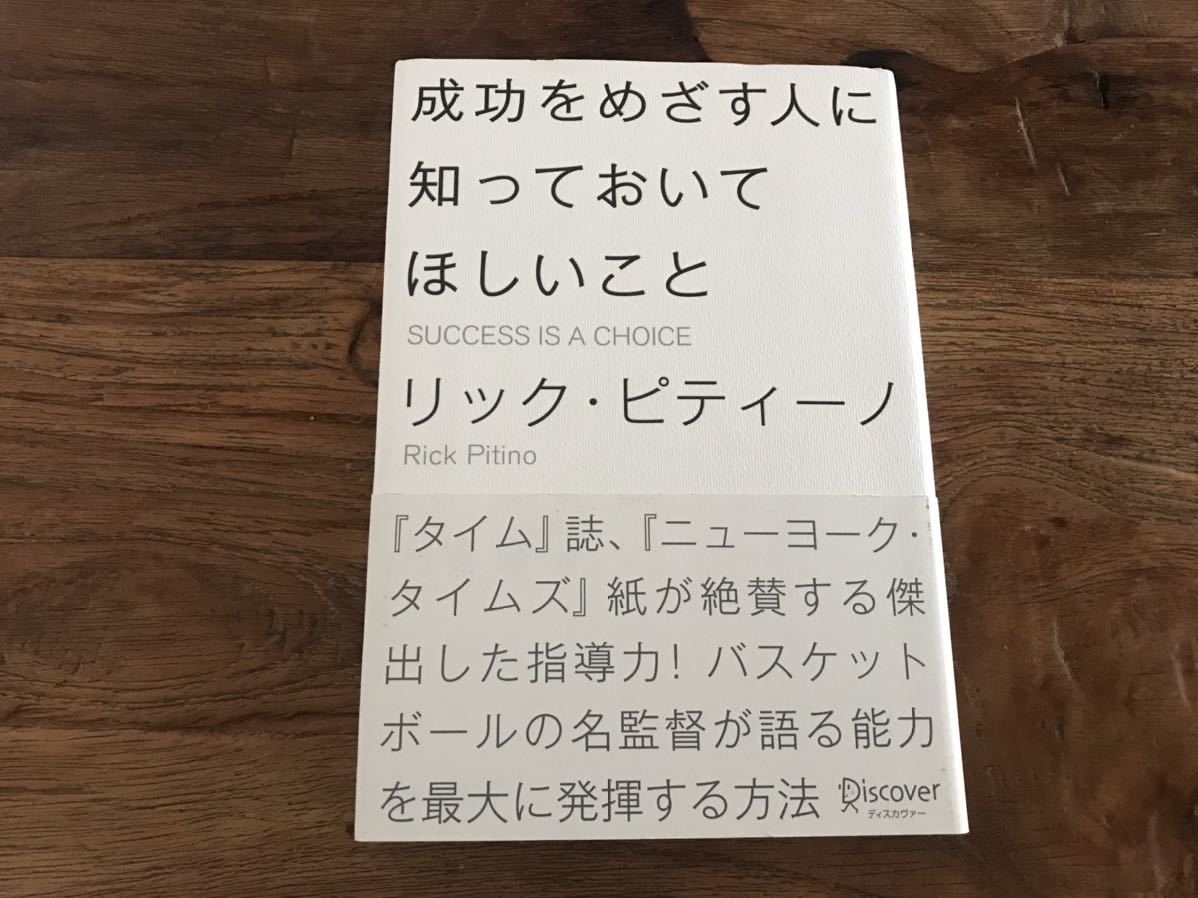 成功をめざす人に
知っておいて
ほしいこと
SUCCESS IS A CHOICE
リック・ピティーノ
Rick Pitino
『タイム』誌、『ニューヨーク・
タイムズ』紙が絶賛する傑
出した指導力！バスケット
ボールの名監督が語る能力
を最大に発揮する方法
Discover
ディスカヴァー